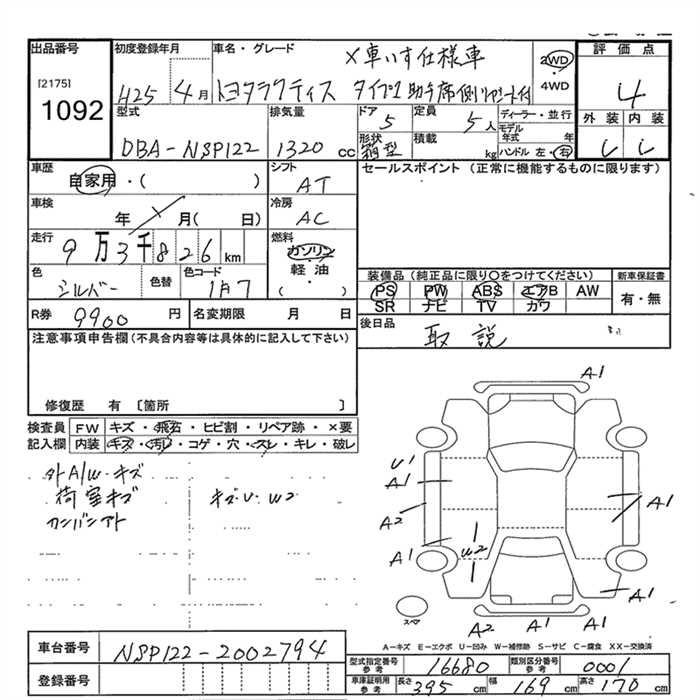 出品番号
[2175]
1092
初度登録年月
H25年4月
車名・グレード
×車いす仕様車
トヨタラクティス タイプ1 助手席側リヤシート付
2WD
4WD
評価点
4
外装 内装
型式
DBA-NSP122
排気量
1320 cc
ドア
5
形状
箱型
定員
5人
積載
kg
ディーラー・並行
モデル年式 年
ハンドル 左・右
車歴
自家用・( )
シフト
AT
車検
年 月( 日)
冷房
AC
走行
9万3千826 km
燃料
ガソリン
軽油
( )
色
シルバー
色替
色コード
1F7
R券
9900円
名変期限 月 日
セールスポイント (正常に機能するものに限ります)
装備品 (純正品に限り○をつけてください)
PS PW ABS エアB AW
SR ナビ TV カワ
新車保証書
有・無
後日品
取説
注意事項申告欄(不具合内容等は具体的に記入して下さい)
修復歴 有 〔箇所 〕
検査員記入欄
FW キズ・飛石・ヒビ割・リペア跡・×要
内装 キズ・汚れ・コゲ・穴・スレ・キレ・破レ
外A/W・キズ
荷室キズ キズ・U・W2
カンバンアト
A1
U1
A1
A2
A1
W2
A1
A1
A2 A1 A1
スペア
A-キズ E-エクボ U-凹み W-補修跡 S-サビ C-腐食 XX-交換済
車台番号
NSP122-2002794
登録番号
型式指定番号 参考
16680
類別区分番号 参考
0001
車庫証明用 参考
長さ 395 cm 幅 169 cm 高さ 170 cm